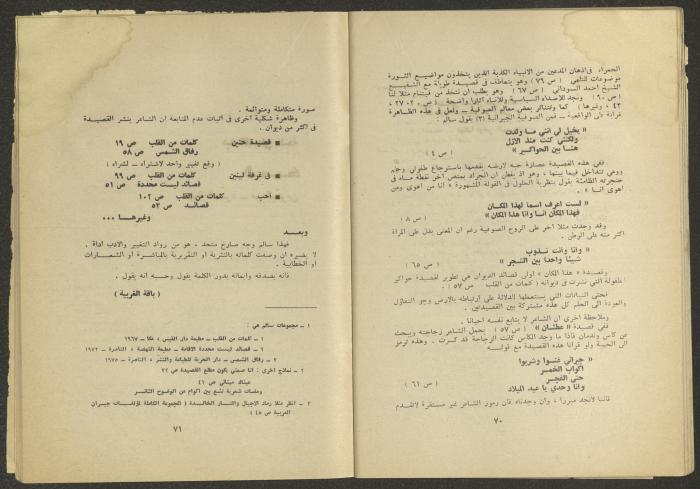 الحمراء فى أذهان المدعين من الانبياء الكذبة الذين يتخذون مواضيع الثورة
موضوعات للتلهي ( ص ٧٦ ) وهو يتعاطف فى قصيدة طويلة مع الشفيع
الشيخ احمد السوداني ( ص ٦٧ ) وهو يطلب ان نتخذ من فيتنام مثلا لنا
( ص ٦٠ ) ونجد للأصداء السياسية وللأنباء آثارا واضحة ( ص ٢٧ ،
٤٣ ، وغيرها ) كما وتتناثر بعض معالم الصوفية ــ ولعل فى هذه الظاهرة
فرادة على الواقعية ــ فمن الصوفية الجبرانية (٣) يقول سالم :
« يخيل لي انني ما ولدت
ولكنني كنت منذ الازل
هنا بين الحواكير »
( ص ٤ )
ففي هذه القصيدة عصارة حبه لارضه يقدمها باسترجاع طفولي وحلم
ووعي تتداخل فيما بينها ، وهو اذ يعلن ان الجراد يمتص آخر نقطة ماء فى
حنجرته الظامئة يقول بنظرية الحلول فى القولة المشهورة « انا من اهوى ومن
اهوى انا » .
« لست اعرف اسما لهذا المكان
فهذا المكان انا وانا هذا المكان »
( ص ٨ )
وقد وجدت فيما مثلا آخر على الروح الصوفية رغم ان المعنى يدل على المرأة
اكثر منه على الوطن .
« وانا وانت نذوب
شيئا واحدا بين الشجر »
( ص ٦٥ )
وقصيدة « هذا المكان » اولى قصائد الديوان هي تطوير لقصيدة حواكير
الطفولة التي نشرت فى ديوانه ( كلمات من القلب ص ٥٧ ) .
فحتى النباتات التي يستعملها الدلالة على ارتباطه بالارض وجو التفاؤل
والعودة الى الحلم كل هذه مشتركة بين القصيدتين .
وملاحظة اخرى ان الشاعر لا يتابع نفسه احيانا .
ففي قصيدة « عطشان » ( ص ٥٧ ) يحمل الشاعر زجاجته ويبحث
عن كأس وندمان فاذا ما وجد الكأس كانت الزجاجة قد كسرت . وهذه ترمز
الى الخيبة ولو قرأنا هذه القصيدة مع قوله
« جيراني غنوا وشربوا
اكواب الخمر
حتى الفجر
وانا وحدي يا عيد الميلاد
( ص ٦١ )
فاننا لانجد مبررا ، وان وجدناه فان رموز الشاعر غير مستقرة لاتقدم
٧٠
صورة متكاملة ومتوائمة .
وظاهرة شكلية اخرى فى اثبات عدم المتابعة ان الشاعر ينشر القصيدة
فى اكثر من ديوان .
قصيدة حنين كلمات من القلب ص ١٩
رفاق الشمس ص ٥٨
( وقع تغيير واحد لاشتراه ــ لشراه )
فى غرفة لبنين كلمات من القلب ص ٩٩
قصائد ليست محددة ص ٥١
احب كلمات من القلب ص ١٠٢
قصائد ص ٥٣
وغيرهـا ٠٠٠
وبعـد
فهذا سالم وجه صارخ متحد ، هو من رواد التغيير والادب اداة .
لا يضيره ان وصفت كلماته بالنثرية او التقريرية بالمباشرة او الشعارات
او الخطابية .
فانه بصدقه وايمانه بدور الكلمة يقول وحسبه انه يقول .
( باقة الغربية )
١ ــ مجموعات سالم هي :
١ ــ كلمات من القلب ــ مطبعة دار القبس ، عكا ــ ١٩٦٧
١ ــ قصائد ليست محددة الاقامة ــ مطبعة النهضة ، الناصرة ــ ١٩٧٢
٢ ــ رفاق الشمس ــ دار الحرية للطباعة والنشر ، الناصرة ــ ١٩٧٥
٢ ــ نماذج اخرى : انا صمتي يكون مطلع القصيدة ص ٣٣
عيناك عينالي ص ٤٦
ومضات شعرية تشع بين اكوام من الوضوح الثائـر
٣ ــ انظر مثلا رماد الاجيال والنـار الخالـدة ( المجموعة الكاملة لمؤلفـات جبـران
العربية ص ٤٥ )
٧١